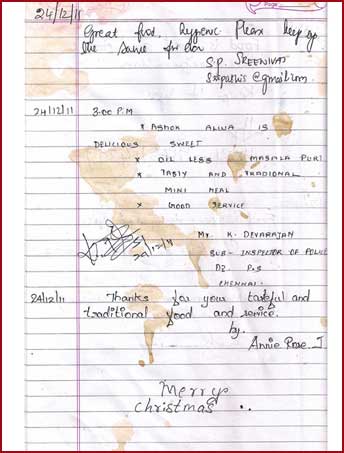 24/12/11
Page
Great food, hygenic Please keep up
the same flavour
S.P. SREENIVAS
@gmail.com
24/12/11 3:00 P.M
* ASHOK ALWA IS
DELICIOUS SWEET
* OIL LESS MASALA PURI
* TASTY AND TRADIONAL
MINI MEAL
* GOOD SERVICE
24/12/11
Mr. K. DEVARAJAN
SUB - INSPECTOR OF POLICE
P.S
CHENNAI.
24/12/11 Thanks for your tasteful and
traditional food and service.
by.
Annie Rose. J
Merry
Christmas ..